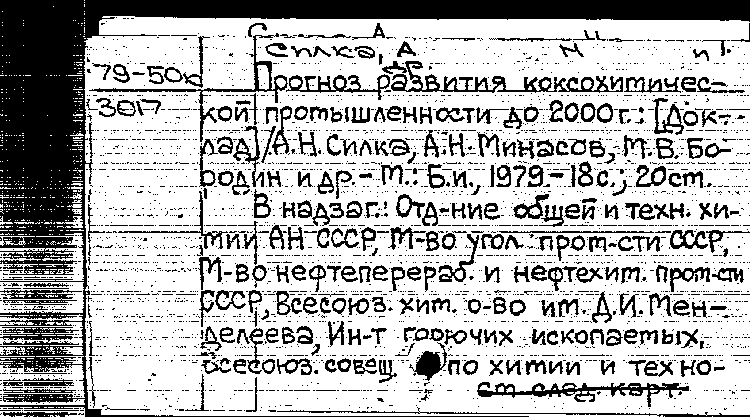 Силка, А
др.
79-50к Прогноз развития коксохимичес-
3017 кой промышленности до 2000 г.: [Док-
лад]/А.Н. Силка, А.Н. Минасов, М.В. Бо-
родин и др. - М.: Б.и., 1979. - 18 с.; 20 см.
В надзаг.: Отд-ние общей и техн. хи-
мии АН СССР, М-во угол. пром-сти СССР,
М-во нефтеперераб. и нефтехим. пром-сти
СССР, Всесоюз. хим. о-во им. Д.И. Мен-
делеева, Ин-т горючих ископаемых,
Всесоюз. совещ. по химии и техно-
См. след. карт.